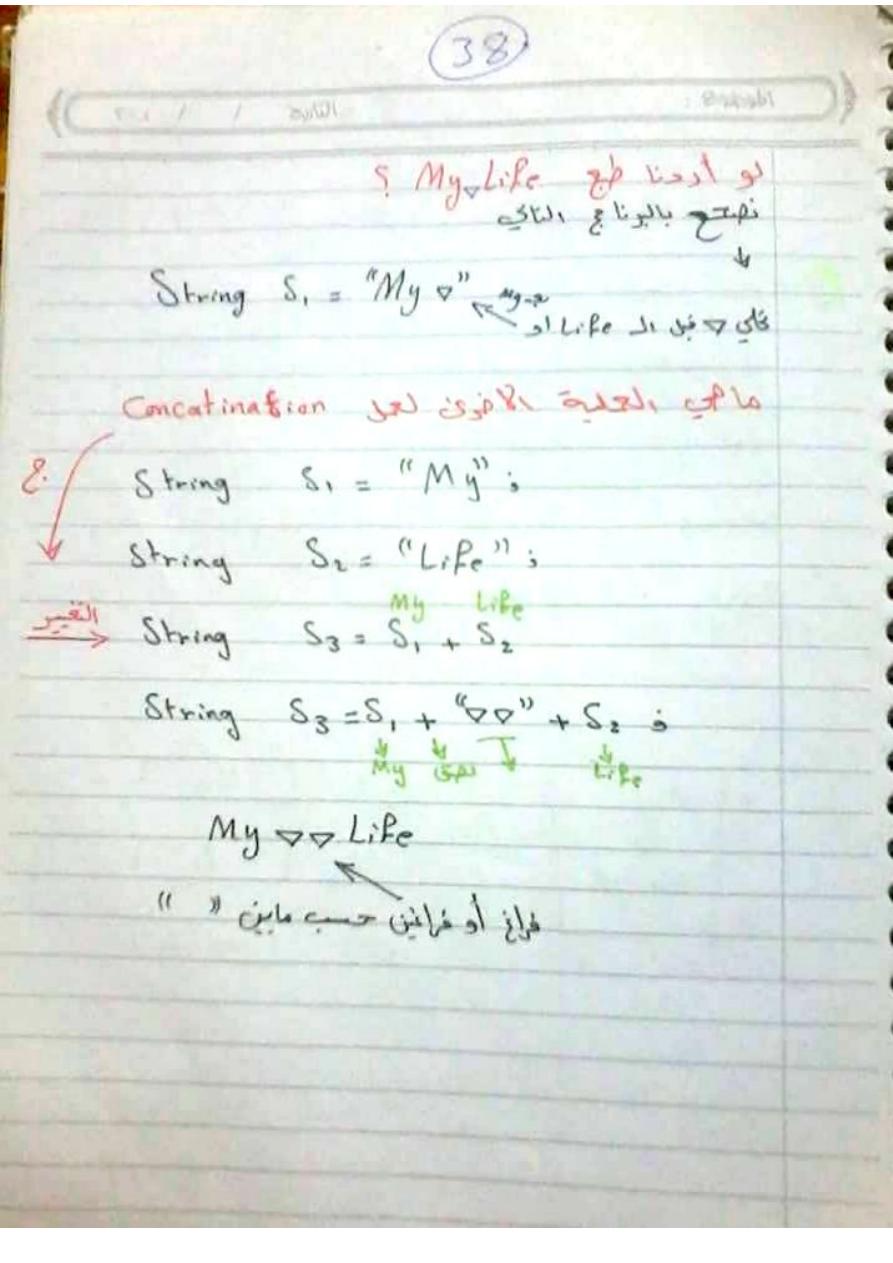 38
الموضوع :
التاريخ / / ٢٠١
لو أردنا طبع My▽Life ؟
نصحح بالبرنامج التالي
String S1 = "My ▽"
▽ قبل الـ Life أو
ما هي العملية الاخرى لعمل Concatination
ج.
String S1 = "My" ;
String S2 = "Life" ;
My Life
التغيير
String S3 = S1 + S2
String S3 = S1 + "▽▽" + S2 ;
My Life
My ▽▽ Life
فراغ أو فراغين حسب مابين " "